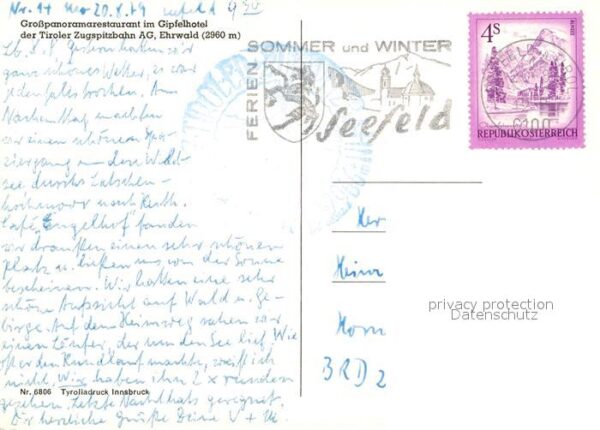 Nr. 14 Mo 20.8.79 Seefeld 9 30
Großpanoramarestaurant im Gipfelhotel
der Tiroler Zugspitzbahn AG, Ehrwald (2960 m)
Lb. Gestern hatten wir
ganz schönes Wetter, es war
jedenfalls trocken. Am
Nachmittag machten
wir einen schönen Spa-
ziergang um den Wild-
see durchs Latschen-
hochmoor nach Reith.
Café "Engelhof" fanden
wir draußen einen sehr schönen
Platz u. ließen uns von der Sonne
bescheinen. Wir hatten eine sehr
schöne Aussicht auf Wald u. Ge-
birge. Auf dem Heimweg sahen wir
einen Läufer, der um den See lief. Wie
oft er den Rundlauf machte, weiß ich
nicht. Wir haben ihn 2 x rundum
gesehen. Letzte Nacht hats geregnet.
Dir herzliche Grüße Deine V + Mu
Nr. 6806 Tyroliadruck Innsbruck
FERIEN SOMMER und WINTER
Seefeld
4S
REPUBLIK ÖSTERREICH
6100
Her
Heinz
Horn
BRD 2
privacy protection
Datenschutz